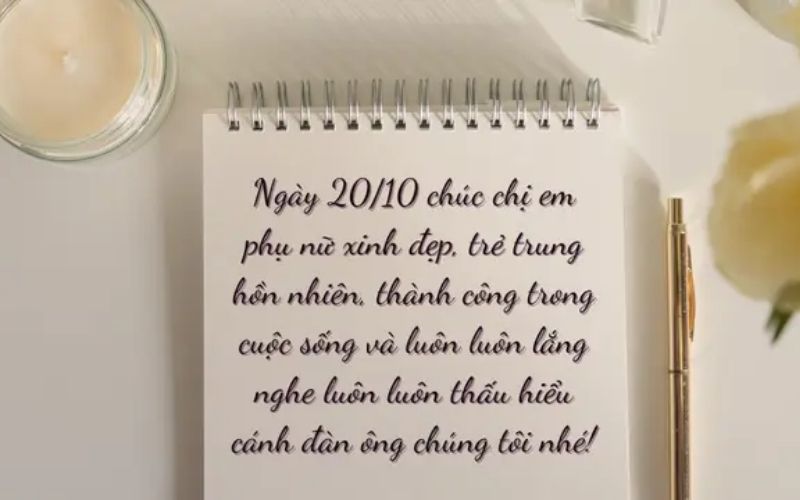 Ngày 20/10 chúc chị em
phụ nữ xinh đẹp, trẻ trung
hồn nhiên, thành công trong
cuộc sống và luôn luôn lắng
nghe luôn luôn thấu hiểu
cánh đàn ông chúng tôi nhé!